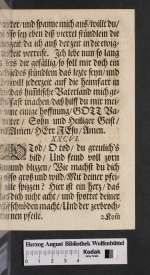 der: und spanne mich aus/wilt du/
so sey eben diß viertel stündlein die
zeit da ich auß derzeit in die ewig-
keit verreise. Ich lebe nun so lang
es dir gefällig, so soll mir doch ein
jedes stündlein das letzte seyn/und
bereit jederzeit auf die heimfart in
das himlische Vaterland mich ge-
fast machen/das hilf du mir mei-
ne einige hoffnung/ GOTT Va-
ter/ Sohn und Heiliger Geist/
Amen/ HErr JEsu/ Amen.
XXCVI.
Tod/ O tod/ du greulichs
bild/ Und feind voll zorn
und blitzen/ Wie machst du dich
so groß und wild/ Mit deiner pfei-
le spitzen? Hier ist ein hertz/ das
dich nicht acht/ und spottet deiner
schnöden macht/ Und der zerbroch-
nen pfeile.
2. Kom
Herzog August Bibliothek Wolfenbüttel